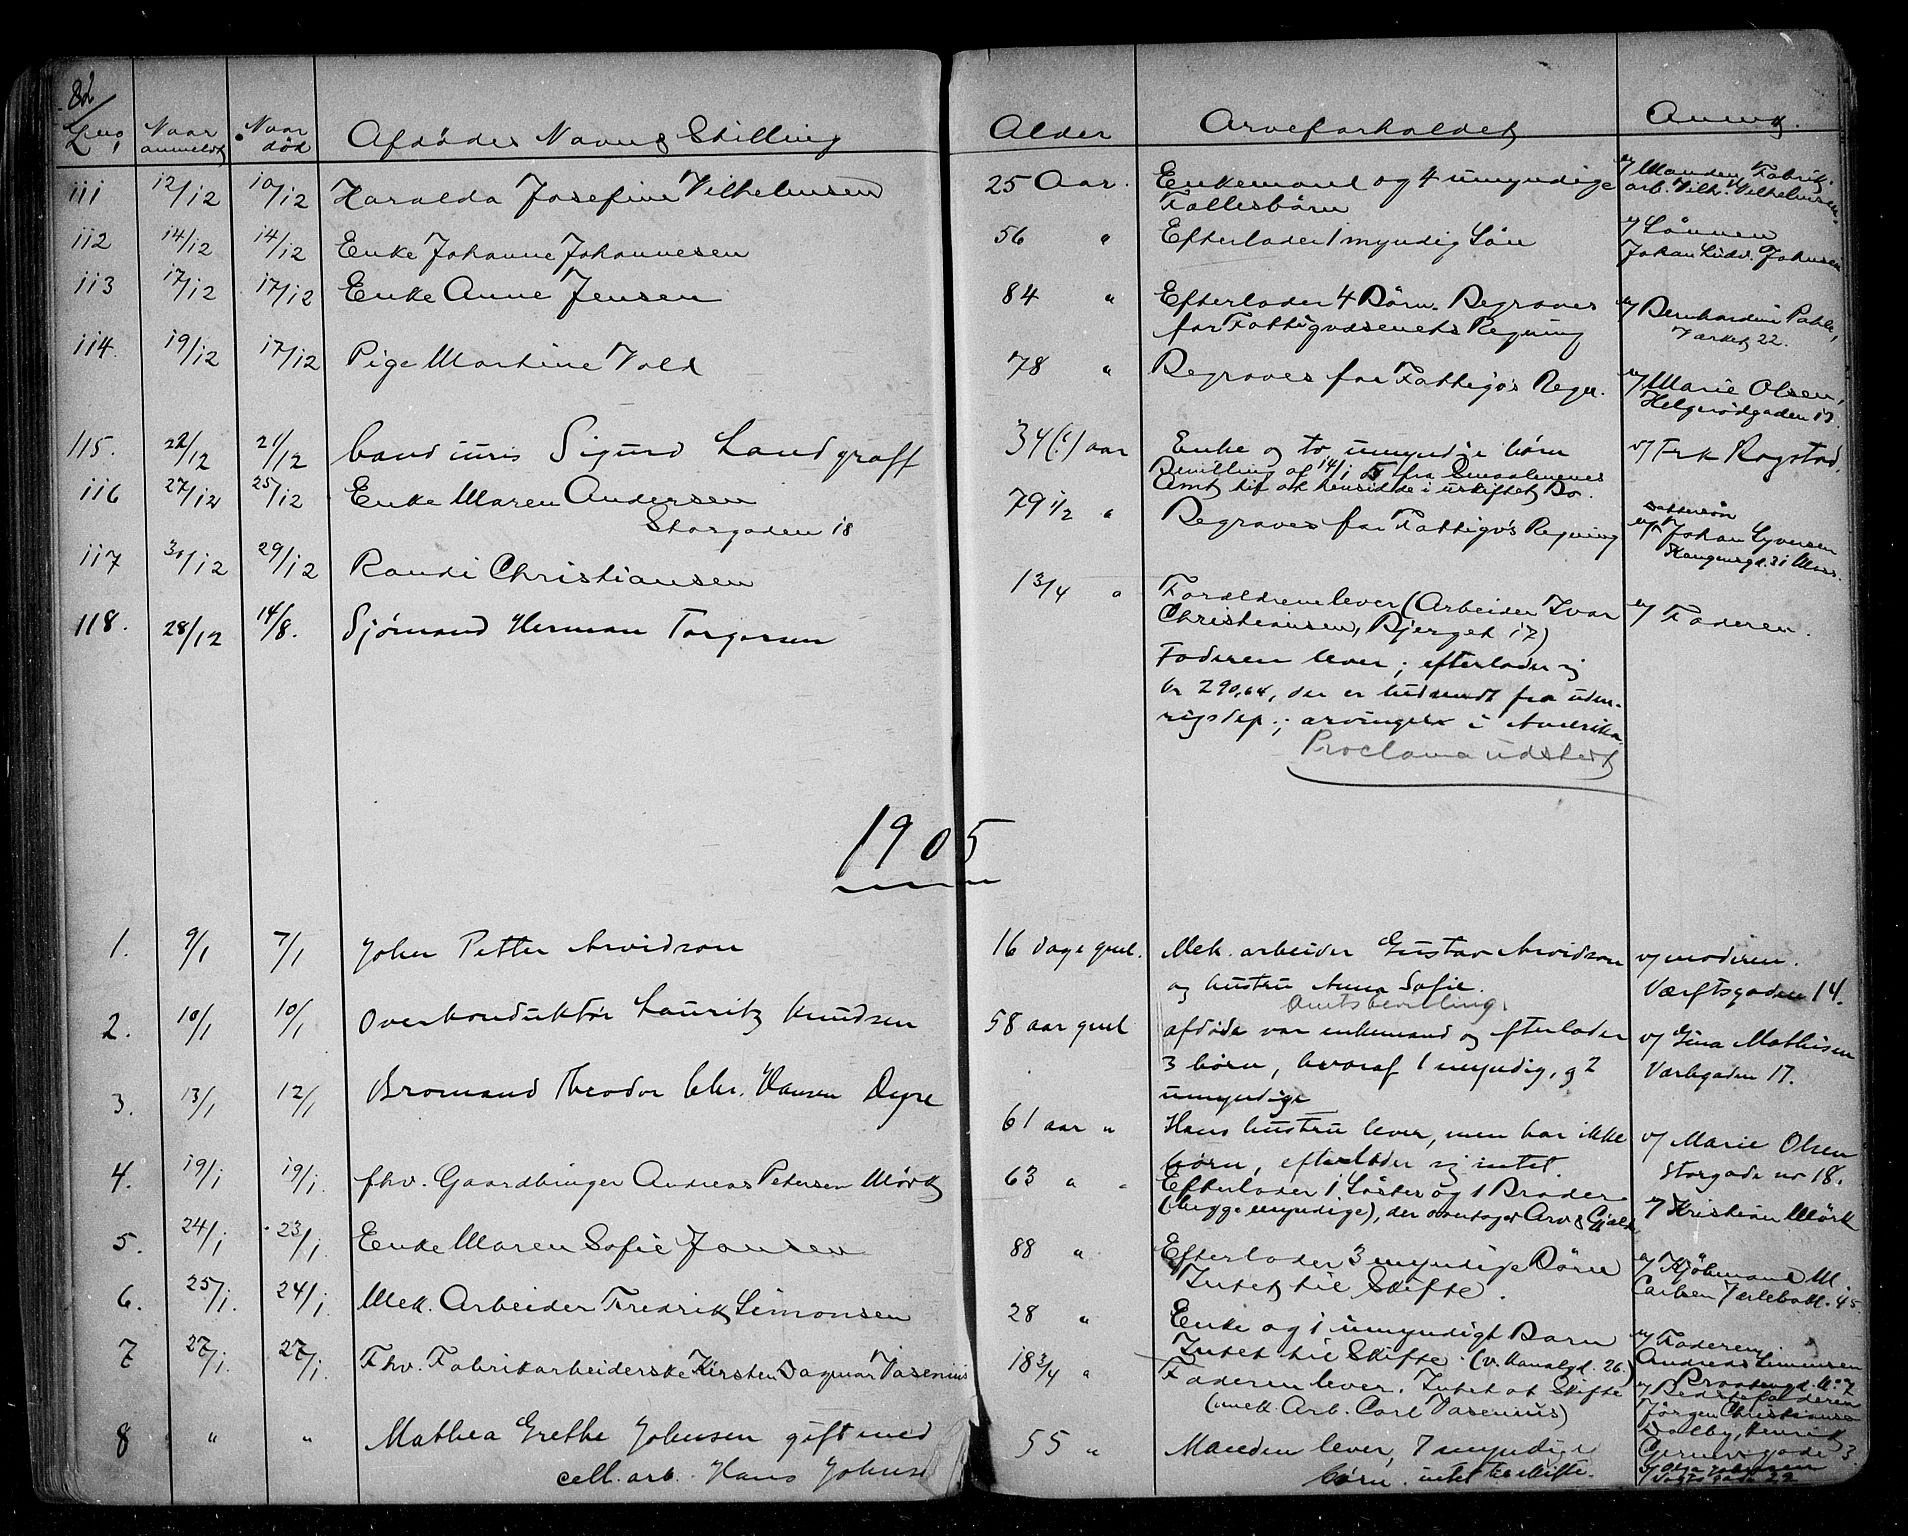 82
Lno, Naar anmeldt Naar død Afdødes Navn & Stilling Alder Arveforholdet Anm.
111 12/12 10/12 Haralda Josefine Vilhelmsen 25 Aar. Enkemand og 4 umyndige v/ Manden, Fabrik-
Fællesbørn arb. Vilh. Vilhelmsen.
112 14/12 14/12 Enke Johanne Johannesen 56 " Efterlader 1 myndig Søn v/ Sønnen
Johan Ludv. Johnsen
113 17/12 17/12 Enke Anne Jensen 84 " Efterlader 4 Børn. Begraves v/ Bernhardine
for Fattigvæsenets Regning Værket 22.
114. 19/12 17/12 Pige Martine Vold 78 " Begraves for Fattigv's Regn. v/ Marie Olsen,
Helgerødgaden
115. 22/12 21/12 Cand juris Sigurd Landgraff 34(!) aar Enke og to umyndige børn v/ Frk Rogstad.
Bevilling af 14/1 5 fra Smaalenenes
Amt til at hensidde i uskiftet Bo.
116 27/12 25/12 Enke Maren Andersen 79 1/2 " Begraves for Fattigv's Regning Dattersøn
Storgaden 18 v/ Johan Syversen
Kongensgd. 31 Moss.
117 30/12 29/12 Randi Christiansen 1 3/4 " Forældrene lever (Arbeider Ivar v/ Faderen.
Christiansen, Bjerget 17)
118. 28/12 14/8. Sjømand Herman Torgersen
Faderen lever; efterlader sig
kr 290,64, der er indsendt fra uden-
rigsdep.; arvinger i Amerika.
Proclama udstedt
1905
1. 9/1 7/1 John Petter Arvidson 16 dage gml. Mek. arbeider Gustav Arvidson v/ moderen.
og hustru Anna Sofie. Værftsgaden 14.
Amtsbevilling.
2. 10/1 10/1 Overkonduktør Lauritz Knudsen 58 aar gml afdøde var enkemand og efterlader v/ Gina Mathisen
3 børn, hvoraf 1 myndig, og 2 Værkgaden 17.
umyndige
3. 13/1 12/1 Bromand Theodor Chr. Hansen Dyre 61 aar " Hans hustru lever, men har ikke v/ Marie Olsen
børn, efterlader sig intet. Storgade no 18.
4. 19/1 19/1. fhv. Gaardbruger Andreas Petersen Mørk 63 " " Efterlader 1 Søster og 1 Broder v/ Kristian Mørk
(begge myndige), der overtager Arv & Gjæld.
5. 24/1 23/1 Enke Maren Sofie Jansen 88 " Efterlader 3 myndige Børn v/ Kjøbmand M.
Intet til Skifte. Carlsen
6. 25/1. 24/1 Mek. Arbeider Fredrik Simonsen 28 " Enke og 1 umyndigt Barn v/ Faderen
Intet til Skifte. (v. Kanalgd. 26.) Andreas Simonsen
7 27/1. 27/1. Fhv. Fabrikarbeiderske Kirsten Dagmar Vasenius 18 3/4 " Faderen lever. Intet at Skifte v/ Bedstefaderen
(mek Arb. Carl Vasenius) Jørgen Christiansen
8 " " Mathea Grethe Johnsen gift med 55 " Manden lever, 7 myndige
cell. arb. Hans Johnsen børn. intet til skifte.